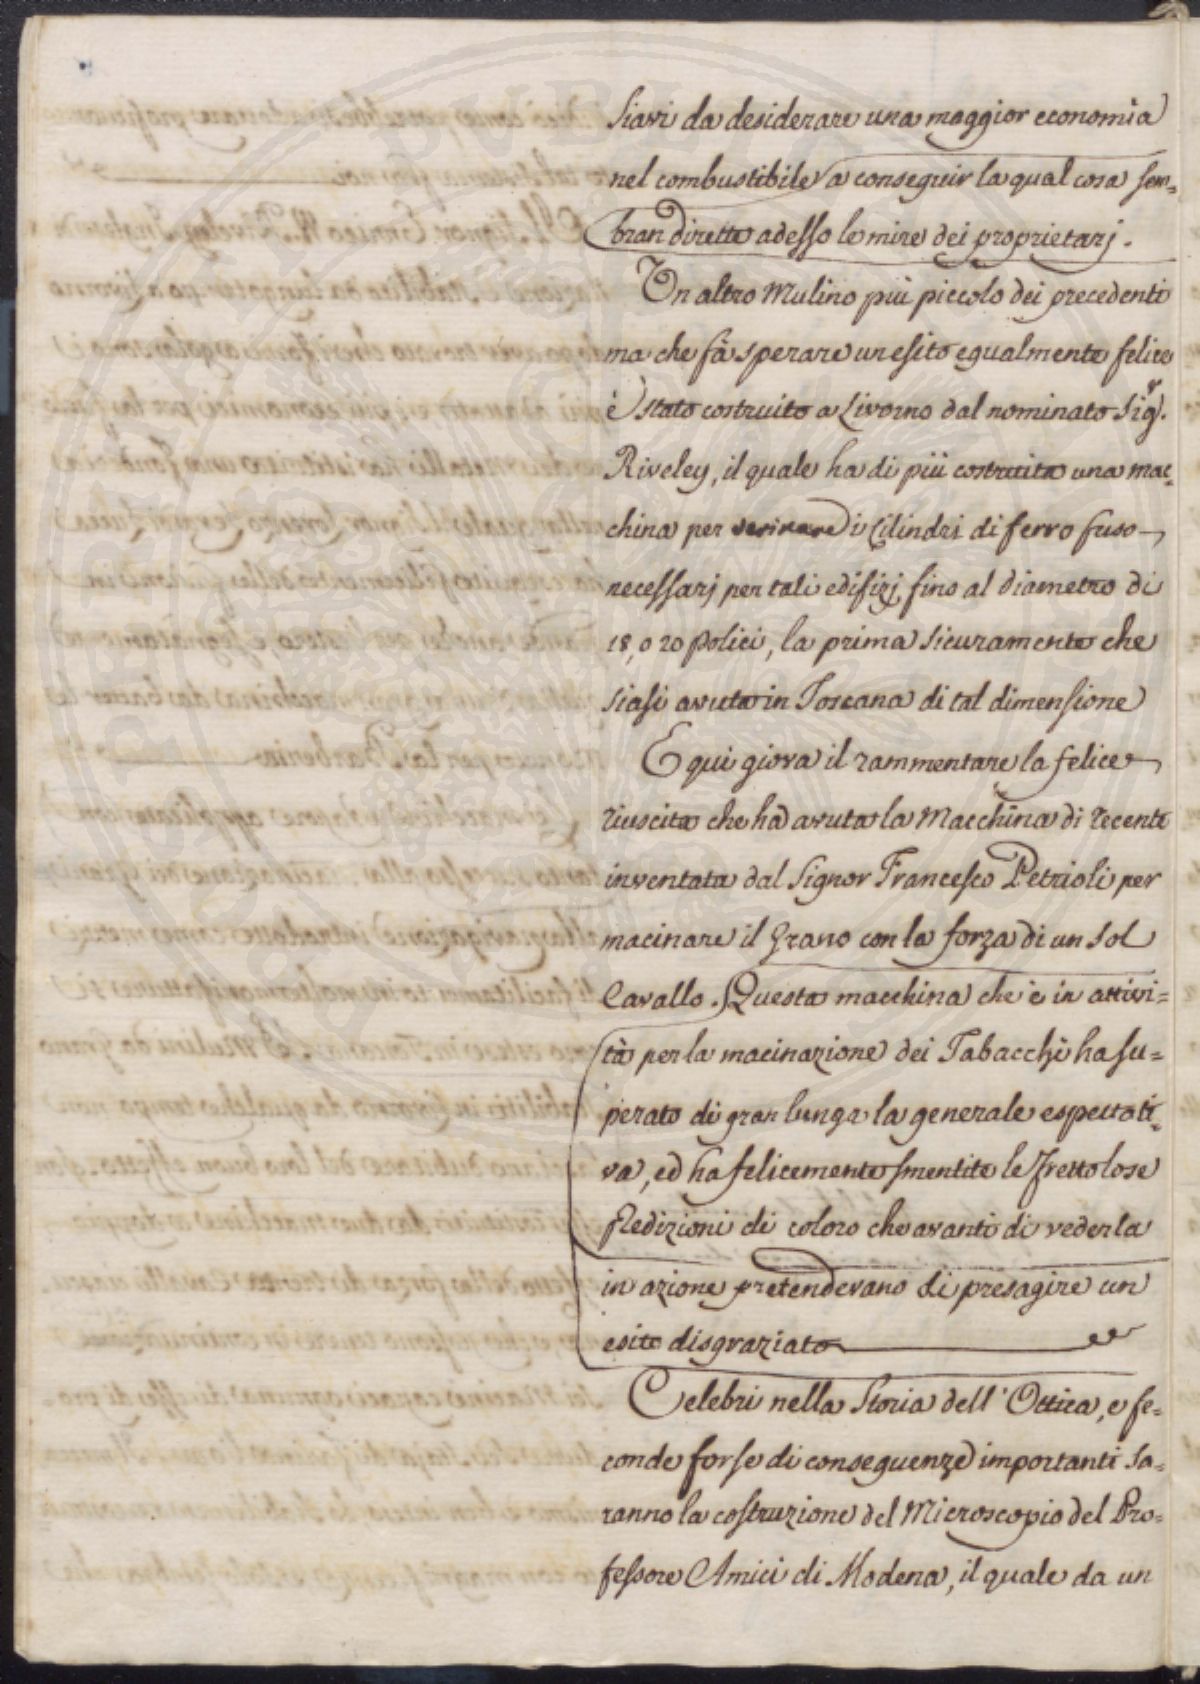 siavi da desiderare una maggior economia
nel combustibile a conseguir la qual cosa sem=
bran dirette adesso le mire dei proprietarj.
Un altro Mulino più piccolo dei precedenti
ma che fà sperare un esito egualmente felice
è stato costruito a Livorno dal nominato Sigr.
Riveley, il quale ha di più costruita una mac=
china per i Cilindri di ferro fuso
necessarj per tali edifizj, fino al diametro di
18, o 20 polici, la prima sicuramente che
siasi avuta in Toscana di tal dimensione
E qui giova il rammentare la felice
riuscita che ha avuta la Macchina di recente
inventata dal Signor Francesco Petrioli per
macinare il Grano con la forza di un sol
Cavallo. Questa macchina che è in attivi=
tà per la macinazione dei Tabacchi ha su=
perato di gran lunga la generale espettati=
va, ed ha felicemente smentite le frettolose
Predizioni di coloro che avanti di vederla
in azione pretendevano di presagire un
esito disgraziato
Celebri nella Storia dell' Ottica, e fe=
conde forse di conseguenze importanti sa=
ranno la costruzione del Microscopio del Pro=
fessore Amici di Modena, il quale da un